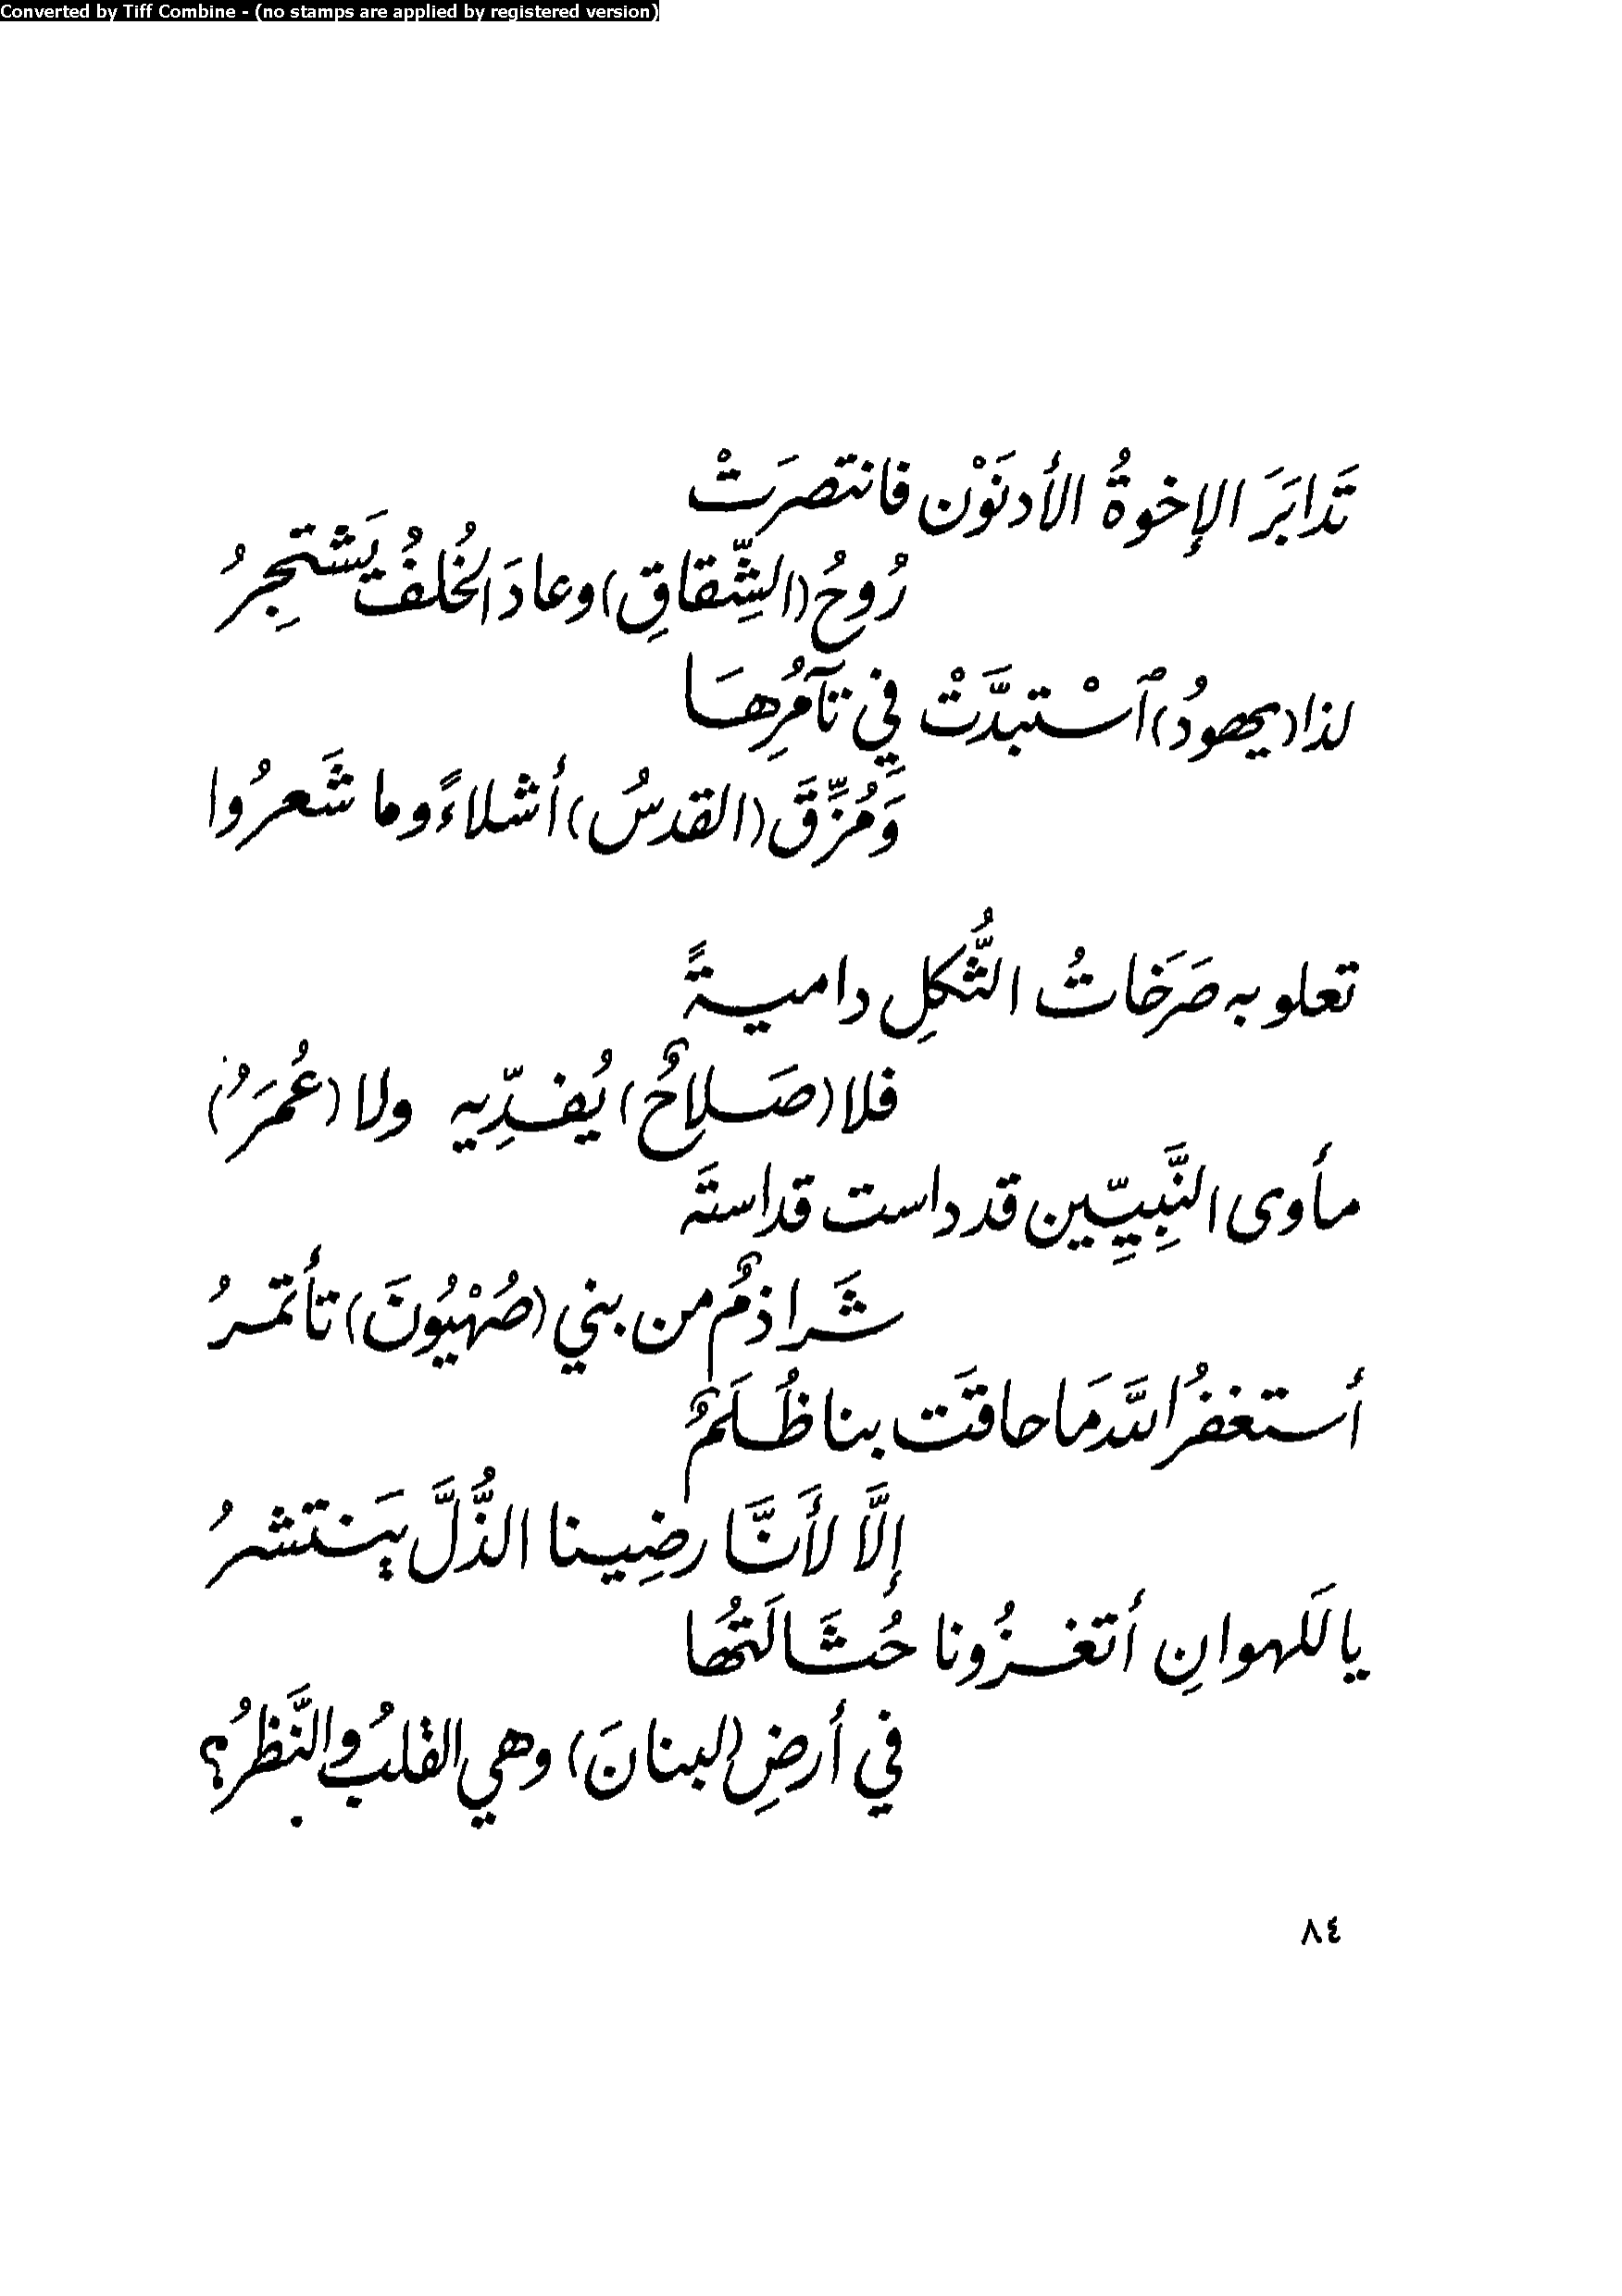 Converted by Tiff Combine - (no stamps are applied by registered version)
تَدابَرَ الإخوةُ الأدنَوْن فانتصرَتْ
رُوحُ (الشِّقاقِ) وعادَ الخُلفُ يَشتجِرُ
لذا (يهودُ) ٱسْتبدَّتْ فِي تآمُرِهَا
وَمُزِّقَ (القدسُ) أشلاءً وما شَعرُوا
تعلو به صَرَخاتُ الثُّكلِ داميةً
فلا (صَلاحٌ) يُفدِّيه ولا (عُمَرُ)
مأوى النَّبِيِّين قد داست قداستَه
شَراذمٌ من بني (صُهْيُونَ) تأتمرُ
أستغفرُ اللَّه مَا حاقَت بنا ظُلَمٌ
إلَّا لأَنَّا رضِينا الذُّلَّ يَنتشرُ
يا لَلهوانِ أتغزُونا حُثَالَتُها
في أرضِ (لبنانَ) وهي القلبُ والنَّظرُ؟
٨٤